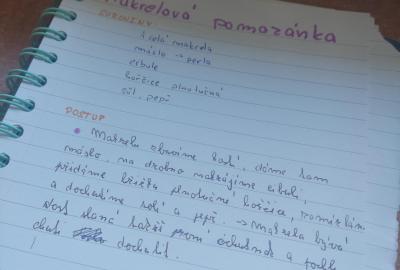 Makrelová pomazánka
SUROVINY
1 celá makrela
máslo → perla
cibule
hořčice plnotučná
sůl, pepř
POSTUP
• Makrelu zbavíme kostí, dáme tam
máslo, na drobno nakrájíme cibuli,
přidáme lžičku plnotučné hořčice, zamícháme
a dochutíme solí a pepř. → Makrela bývá
dost slaná lepší první ochutnat a podle
chuti dochutit.